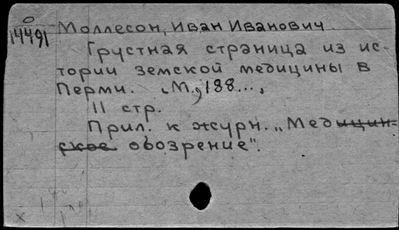 14491
Моллесон, Иван Иванович.
Грустная страница из ис-
тории земской медицины в
Перми. М, 188...,
11 стр.
Прил. к журн. „Медицин-
ское обозрение".